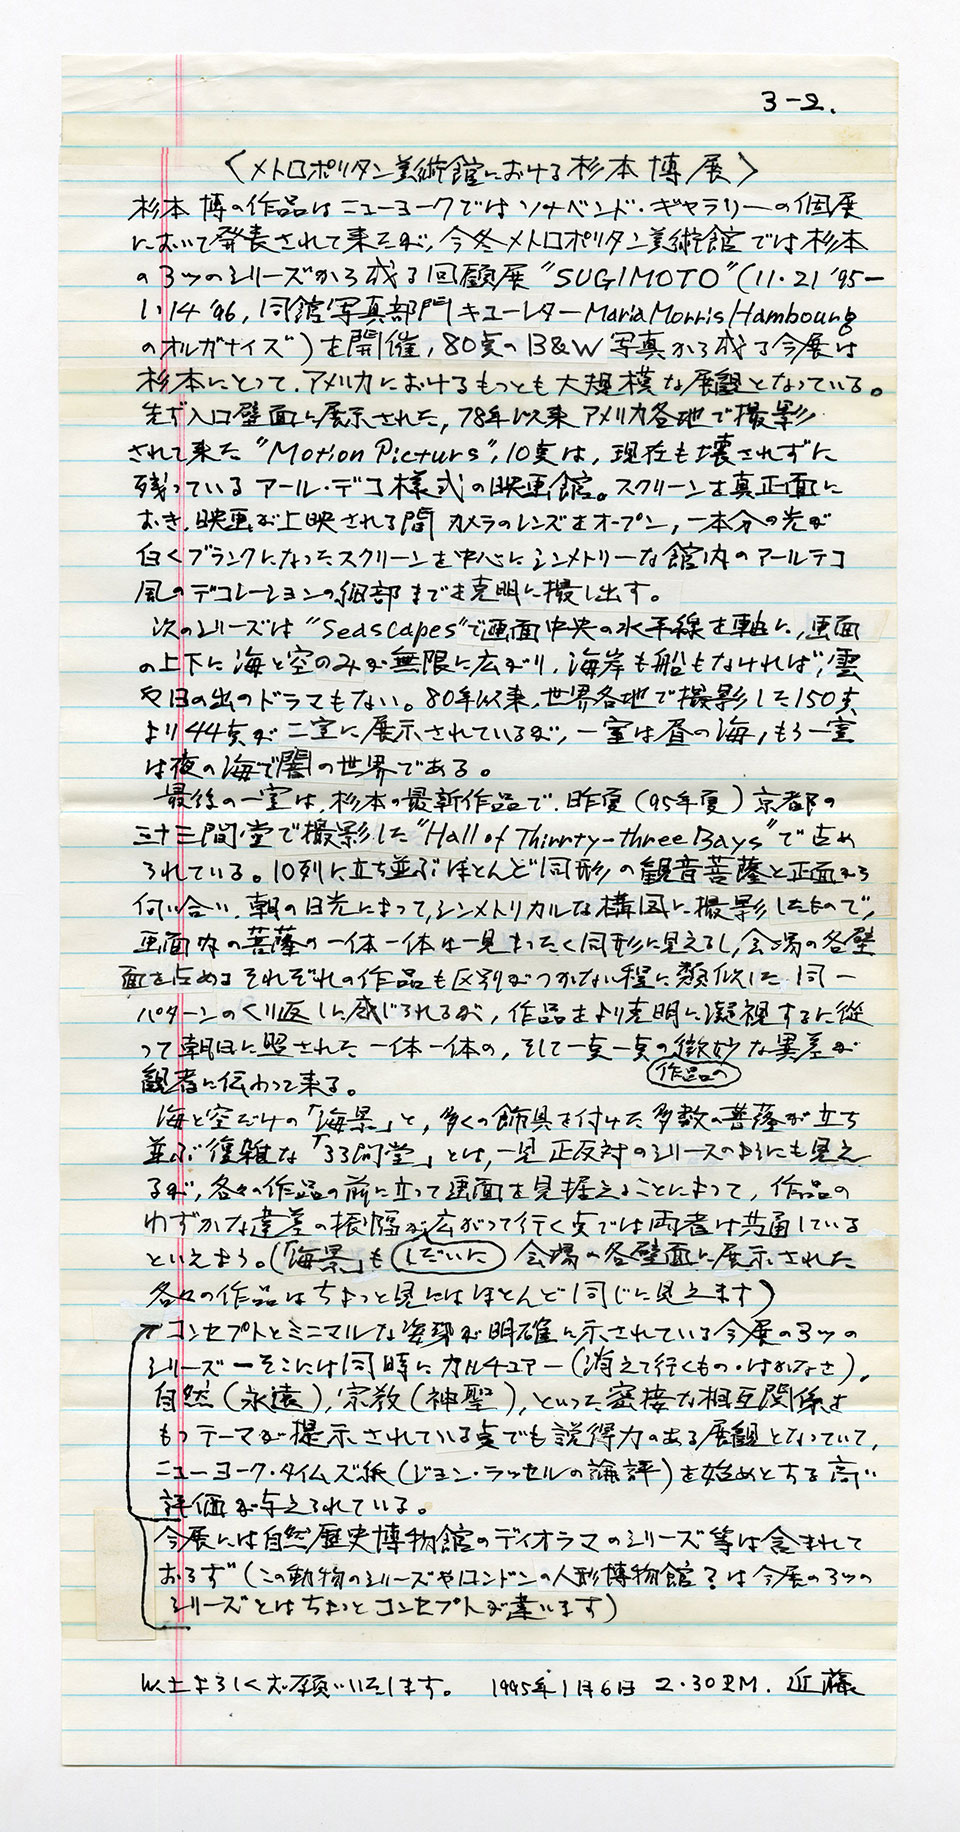 3-2.
〈メトロポリタン美術館における杉本博展〉
杉本博の作品はニューヨークではソナベンド・ギャラリーの個展
において発表されて来たが、今冬メトロポリタン美術館では杉本
の3ツのシリーズから成る回顧展"SUGIMOTO"(11・21 '95-
1・14 '96, 同館写真部門キューレターMaria Morris Hambourg
のオルガナイズ)を開催,80点のB&W写真から成る今展は
杉本にとって、アメリカにおけるもっとも大規模な展観となっている。
先ず入口壁面に展示された,78年以来アメリカ各地で撮影
されて来た"Motion Picturs",10点は,現在も壊されずに
残っているアール・デコ様式の映画館。スクリーンを真正面に
おき、映画が上映される間カメラのレンズをオープン,一本分の光が
白くブランクになったスクリーンを中心にシンメトリーな館内のアールデコ
風のデコレーションの細部までを克明に撮し出す。
次のシリーズは"Seascapes"で画面中央の水平線を軸に,画面
の上下に海と空のみが無限に広がり,海岸も船もなければ,雲
や日の出のドラマもない。80年以来,世界各地で撮影した150点
より44点が二室に展示されているが,一室は昼の海,もう一室
は夜の海で闇の世界である。
最後の一室は、杉本の最新作品で、昨夏(95年夏)京都の
三十三間堂で撮影した"Hall of Thirrty-three Bays"で占め
られている。10列に立ち並ぶほとんど同形の観音菩薩と正面から
向い合い、朝の日光によって,シンメトリカルな構図に撮影したもので,
画面内の菩薩の一体一体は一見まったく同形に見えるし,会場の各壁
面を占めるそれぞれの作品も区別がつかない程に類似した同一
パターンのくり返しに感じられるが,作品をより克明に凝視するに従
って朝日に照された一体一体の,そして一点一点の微妙な異差が
作品の
観者に伝わって来る。
海と空だけの「海景」と,多くの飾具を付けた多数の菩薩が立ち
並ぶ複雑な「33間堂」とは,一見正反対のシリーズのようにも見え
るが,各々の作品の前に立って画面を見据えることによって,作品の
わずかな違差の振幅が広がって行く点では両者は共通している
といえよう。(「海景」もしだいに会場の各壁面に展示された
各々の作品はちょっと見にはほとんど同じに見えます)
コンセプトとミニマルな姿勢が明確に示されている今展の3ツの
シリーズーそこには同時にカルチュアー(消えて行くもの・はかなさ),
自然(永遠),宗教(神聖),といった密接な相互関係を
もつテーマが提示されている点でも説得力のある展観となっていて,
ニューヨーク・タイムズ紙(ジョン・ラッセルの論評)を始めとする高い
評価が与えられている。
今展には自然歴史博物館のディオラマのシリーズ等は含まれて
おらず(この動物のシリーズやロンドンの人形博物館?は今展の3ツの
シリーズとはちょっとコンセプトが違います)
以上よろしくお願いいたします。 1995年1月6日 2.30PM. 近藤